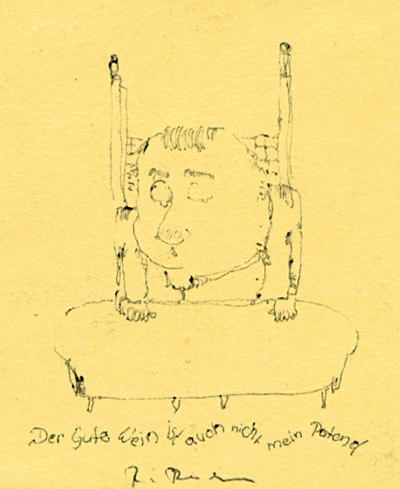 Der Gute Wein ist auch nicht mein Patend